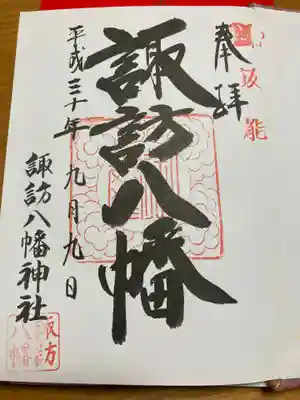 奉拝
諏訪八幡
平成三十年九月九日
諏訪八幡神社
諏訪
八幡